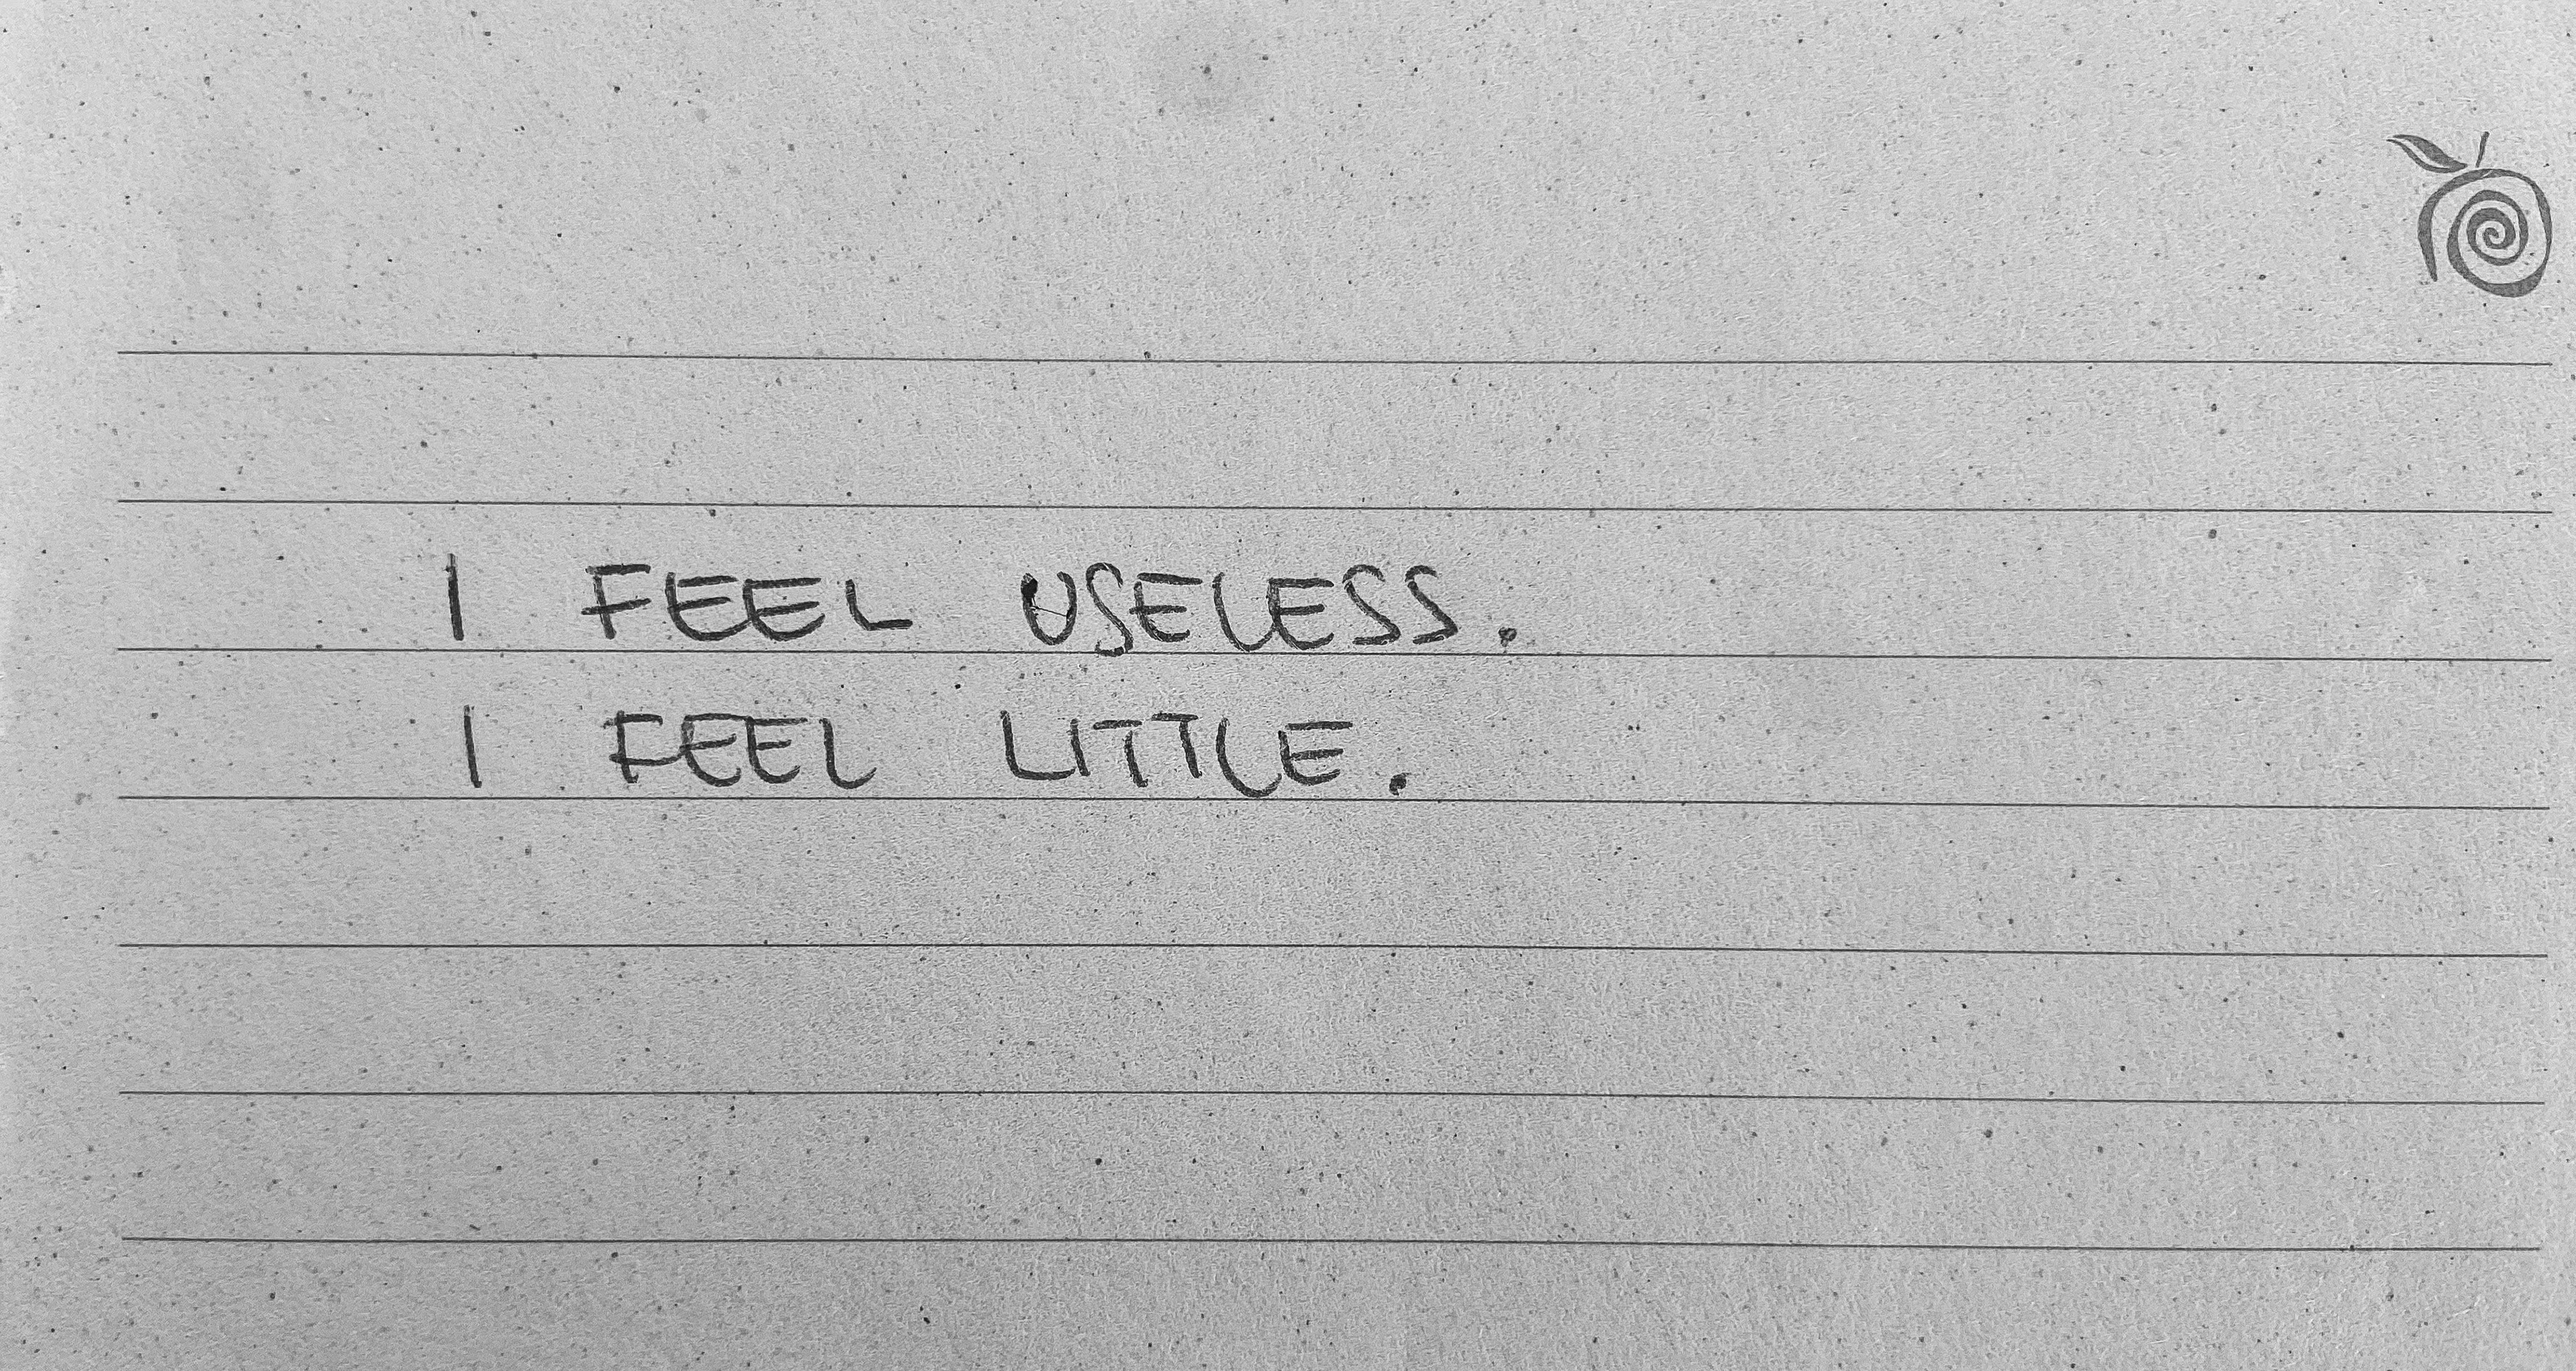 I FEEL USELESS.
I FEEL LITTLE.